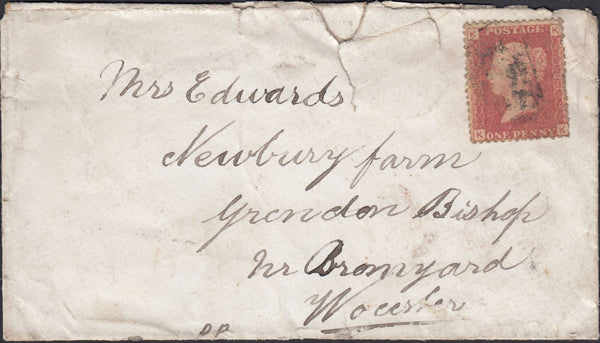 K POSTAGE K
K ONE PENNY K
Mrs Edwards
Newbury farm
Grendon Bishop
Nr Bromyard
Worcester